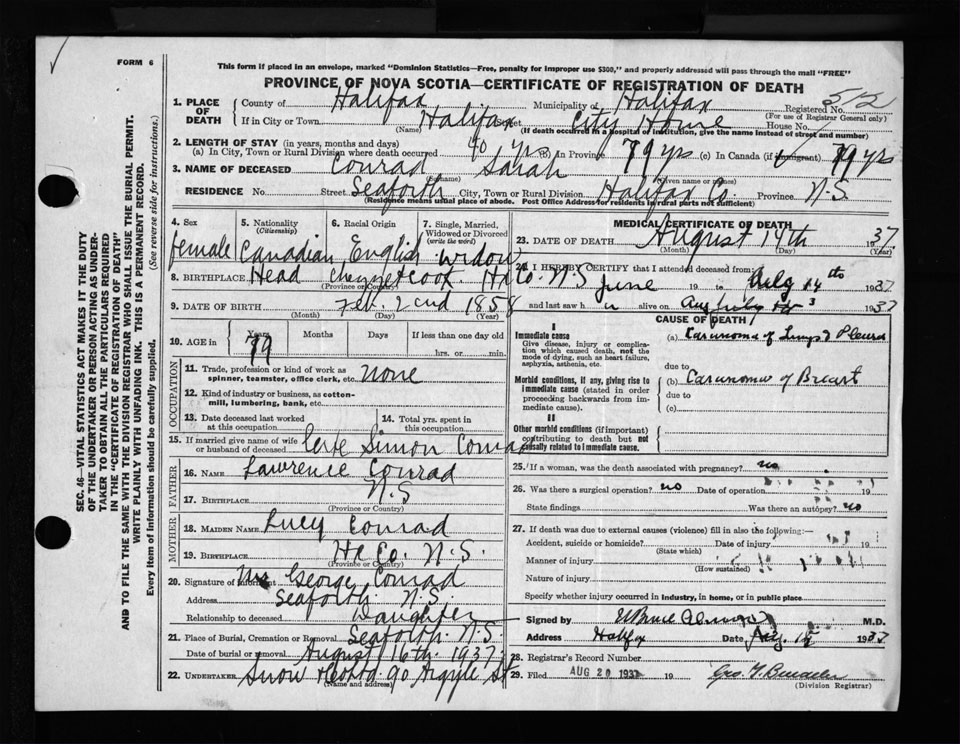 FORM 6
This form if placed in an envelope, marked "Dominion Statistics—Free, penalty for improper use $300," and properly addressed will pass through the mail "FREE"
PROVINCE OF NOVA SCOTIA—CERTIFICATE OF REGISTRATION OF DEATH
SEC. 46—VITAL STATISTICS ACT MAKES IT THE DUTY
OF THE UNDERTAKER OR PERSON ACTING AS UNDER-
TAKER TO OBTAIN ALL THE PARTICULARS REQUIRED
IN THE "CERTIFICATE OF REGISTRATION OF DEATH"
AND TO FILE THE SAME WITH THE DIVISION REGISTRAR WHO SHALL ISSUE THE BURIAL PERMIT.
WRITE PLAINLY WITH UNFADING INK. THIS IS A PERMANENT RECORD.
Every item of information should be carefully supplied. (See reverse side for instructions.)
1. PLACE OF DEATH County of Halifax Municipality of Halifax Registered No. 512
(For use of Registrar General only)
If in City or Town Halifax Street City Home House No.
(Name) (If death occurred in a hospital or institution, give the name instead of street and number)
2. LENGTH OF STAY (in years, months and days)
(a) In City, Town or Rural Division where death occurred 40 yrs (b) In Province 79 yrs (c) In Canada (if immigrant) 79 yrs
3. NAME OF DECEASED Conrad Sarah
(Given name or names)
RESIDENCE No. Street Seaforth City, Town or Rural Division Halifax Co. Province N.S.
(Residence means usual place of abode. Post Office Address for residents in rural parts not sufficient)
4. Sex 5. Nationality (Citizenship) 6. Racial Origin 7. Single, Married, Widowed or Divorced (write the word)
female Canadian English widow
8. BIRTHPLACE Head Chezzetcook Hx Co. N.S.
(Province or Country)
9. DATE OF BIRTH Feb. 2cnd 1858
(Month) (Day) (Year)
10. AGE in Years Months Days If less than one day old
79 hrs. or min.
OCCUPATION
11. Trade, profession or kind of work as spinner, teamster, office clerk, etc. none
12. Kind of industry or business, as cotton-mill, lumbering, bank, etc.
13. Date deceased last worked at this occupation 14. Total yrs. spent in this occupation
15. If married give name of wife or husband of deceased Simon Conrad
FATHER
16. NAME Lawrence Conrad
17. BIRTHPLACE N.S
(Province or Country)
MOTHER
18. MAIDEN NAME Lucy Conrad
19. BIRTHPLACE Hx Co. N.S.
(Province or Country)
20. Signature of informant Mrs George Conrad
Address Seaforth N.S.
Relationship to deceased Daughter
21. Place of Burial, Cremation or Removal Seaforth N.S.
Date of burial or removal August 16th 1937
22. UNDERTAKER Snow & Co Ltd. 90 Argyle St
(Name and address)
MEDICAL CERTIFICATE OF DEATH
23. DATE OF DEATH August 14th 1937
(Month) (Day) (Year)
24. I HEREBY CERTIFY that I attended deceased from:
June 19 to Aug 14th 1937
and last saw h alive on 1937
CAUSE OF DEATH
I
Immediate cause
Give disease, injury or complication which caused death, not the mode of dying, such as heart failure, asphyxia, asthenia, etc.
(a) Carcinoma of Lungs & Pleura
due to
Morbid conditions, if any, giving rise to immediate cause (stated in order proceeding backwards from immediate cause).
(b) Carcinoma of Breast
due to
(c)
II
Other morbid conditions (if important) contributing to death but not causally related to immediate cause.
25. If a woman, was the death associated with pregnancy? no
26. Was there a surgical operation? no Date of operation 19
State findings Was there an autopsy? no
27. If death was due to external causes (violence) fill in also the following:—
Accident, suicide or homicide? Date of injury 19
(State which)
Manner of injury
(How sustained)
Nature of injury
Specify whether injury occurred in industry, in home, or in public place
Signed by M.D.
Address Halifax Date Aug. 1937
28. Registrar's Record Number
29. Filed AUG 20 1937 19
(Division Registrar)